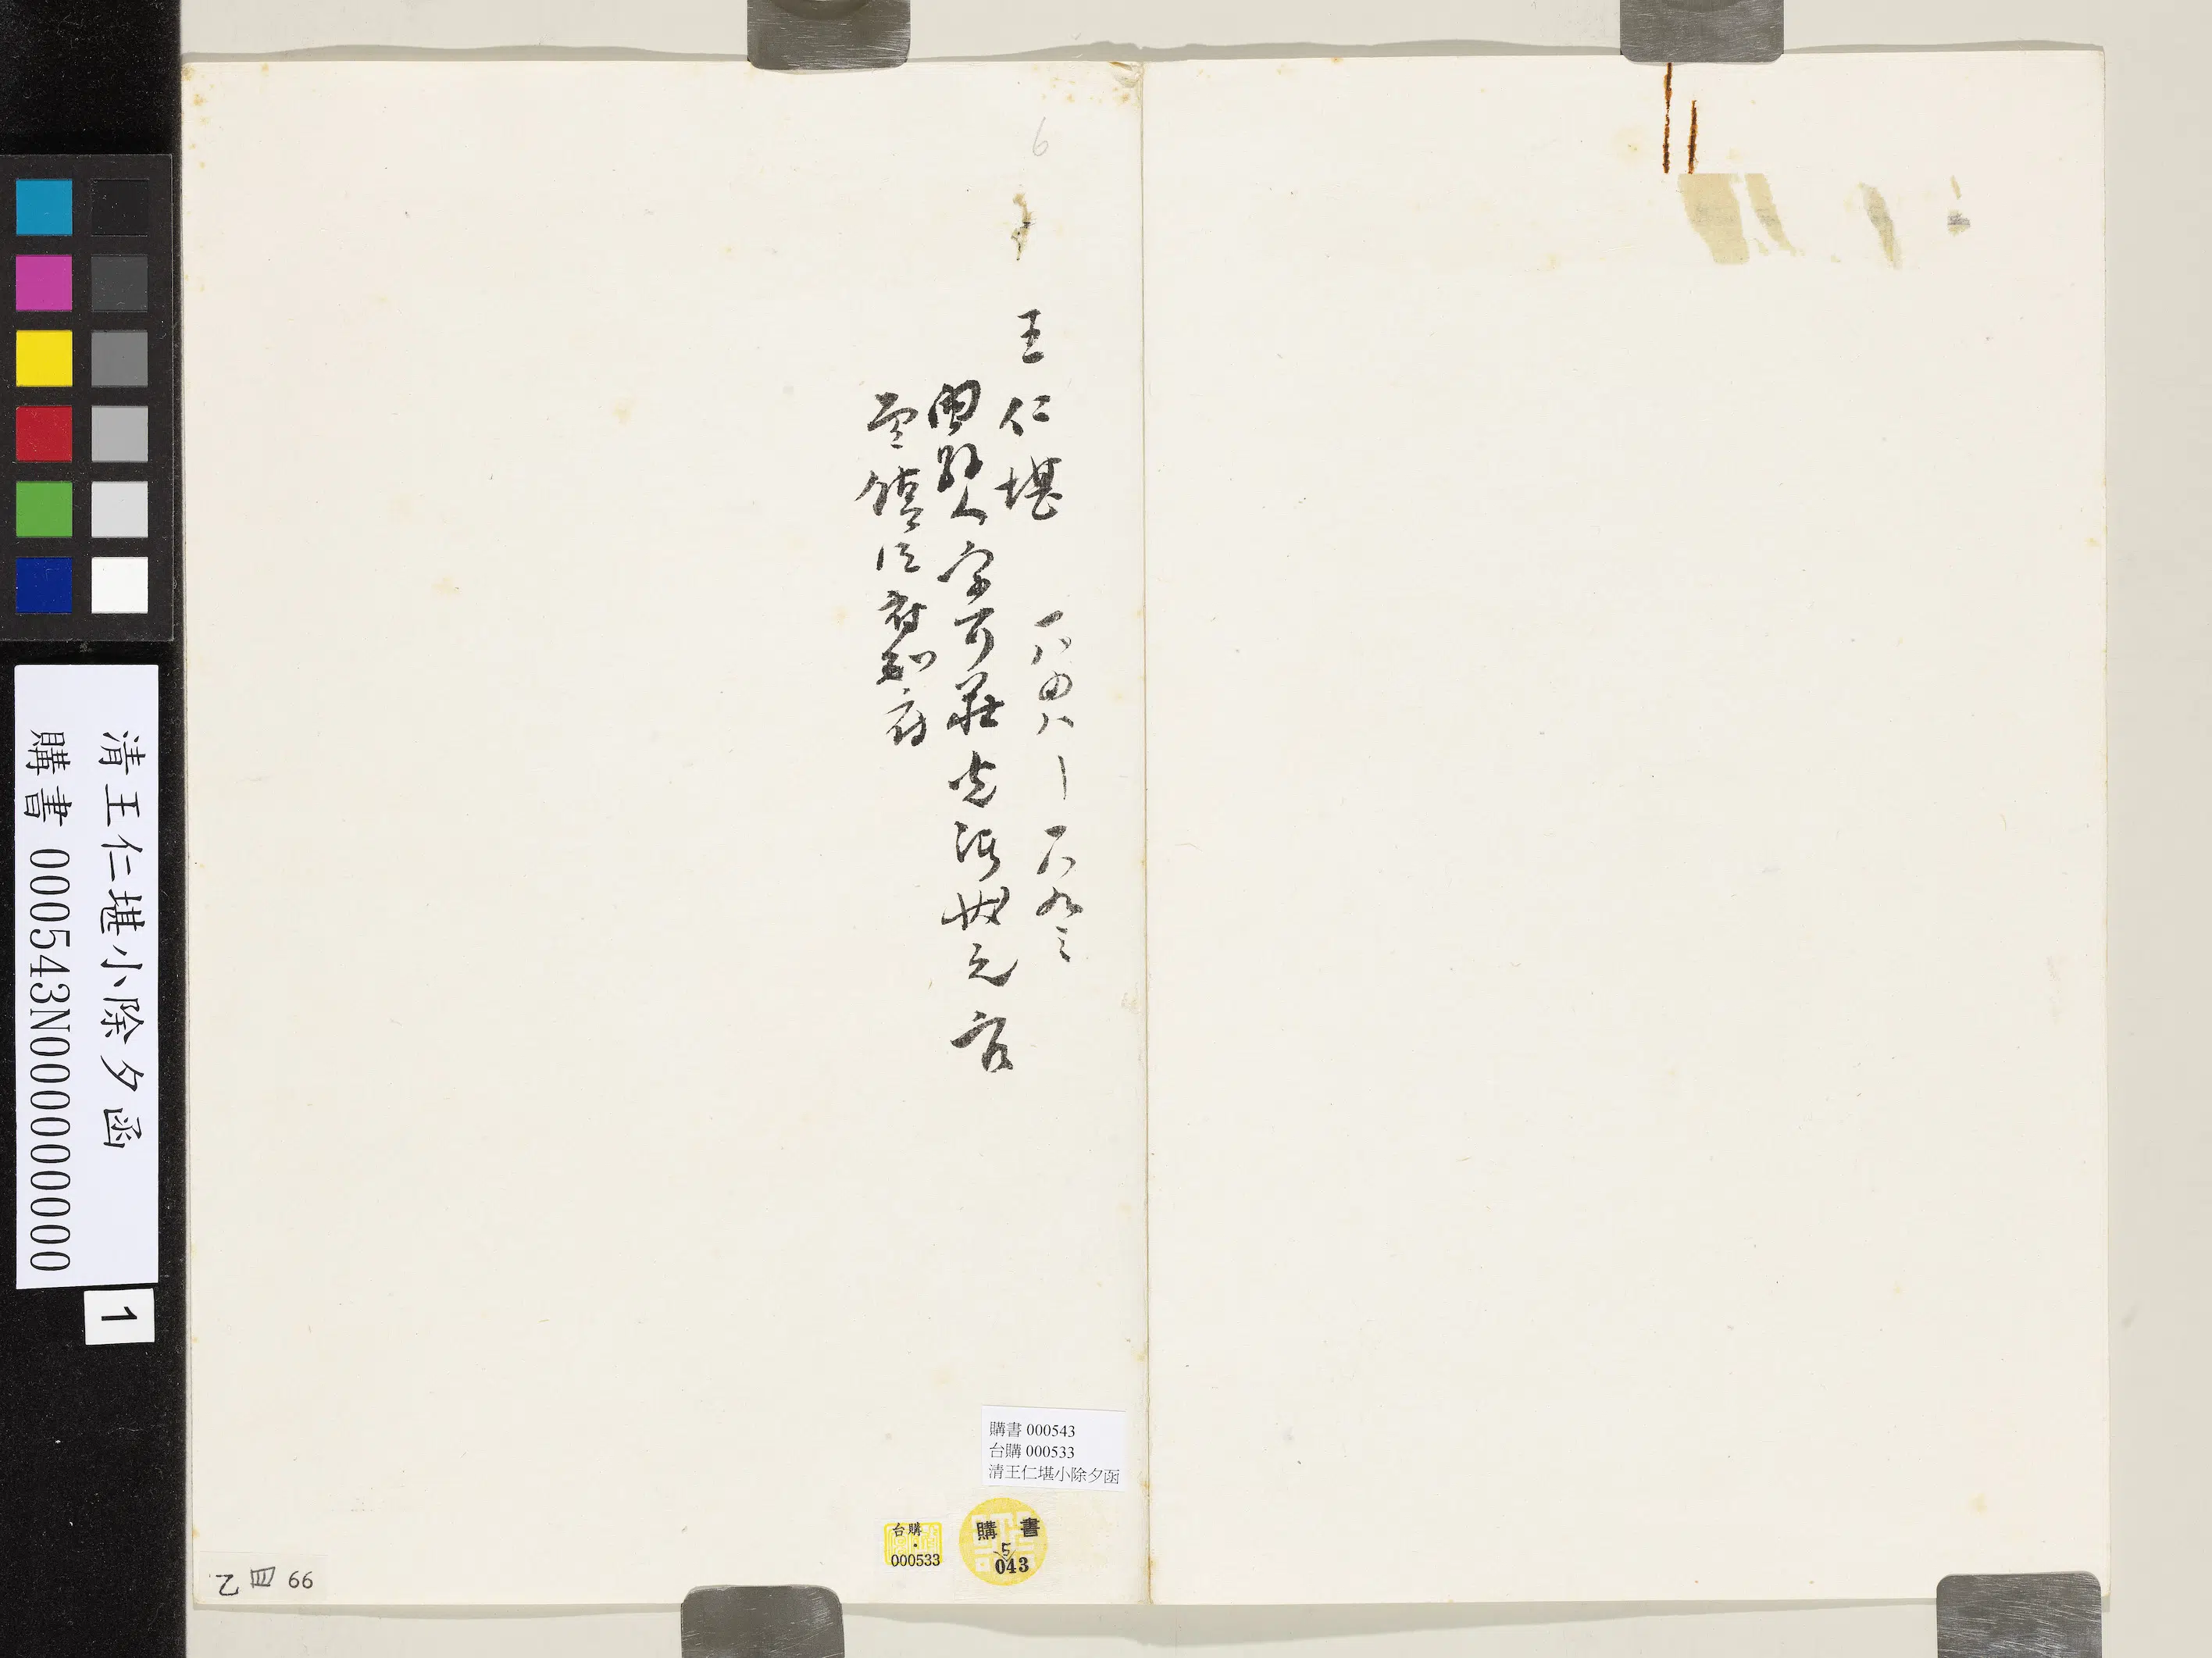 6
王仁堪 一八四八—一八九三
閩縣人字可莊光緒狀元官
至鎮江府知府
清王仁堪小除夕函
購書 000543N000000000
1
購書 000543
台購 000533
清王仁堪小除夕函
購 書
5
043
台購
000533
乙 四 66